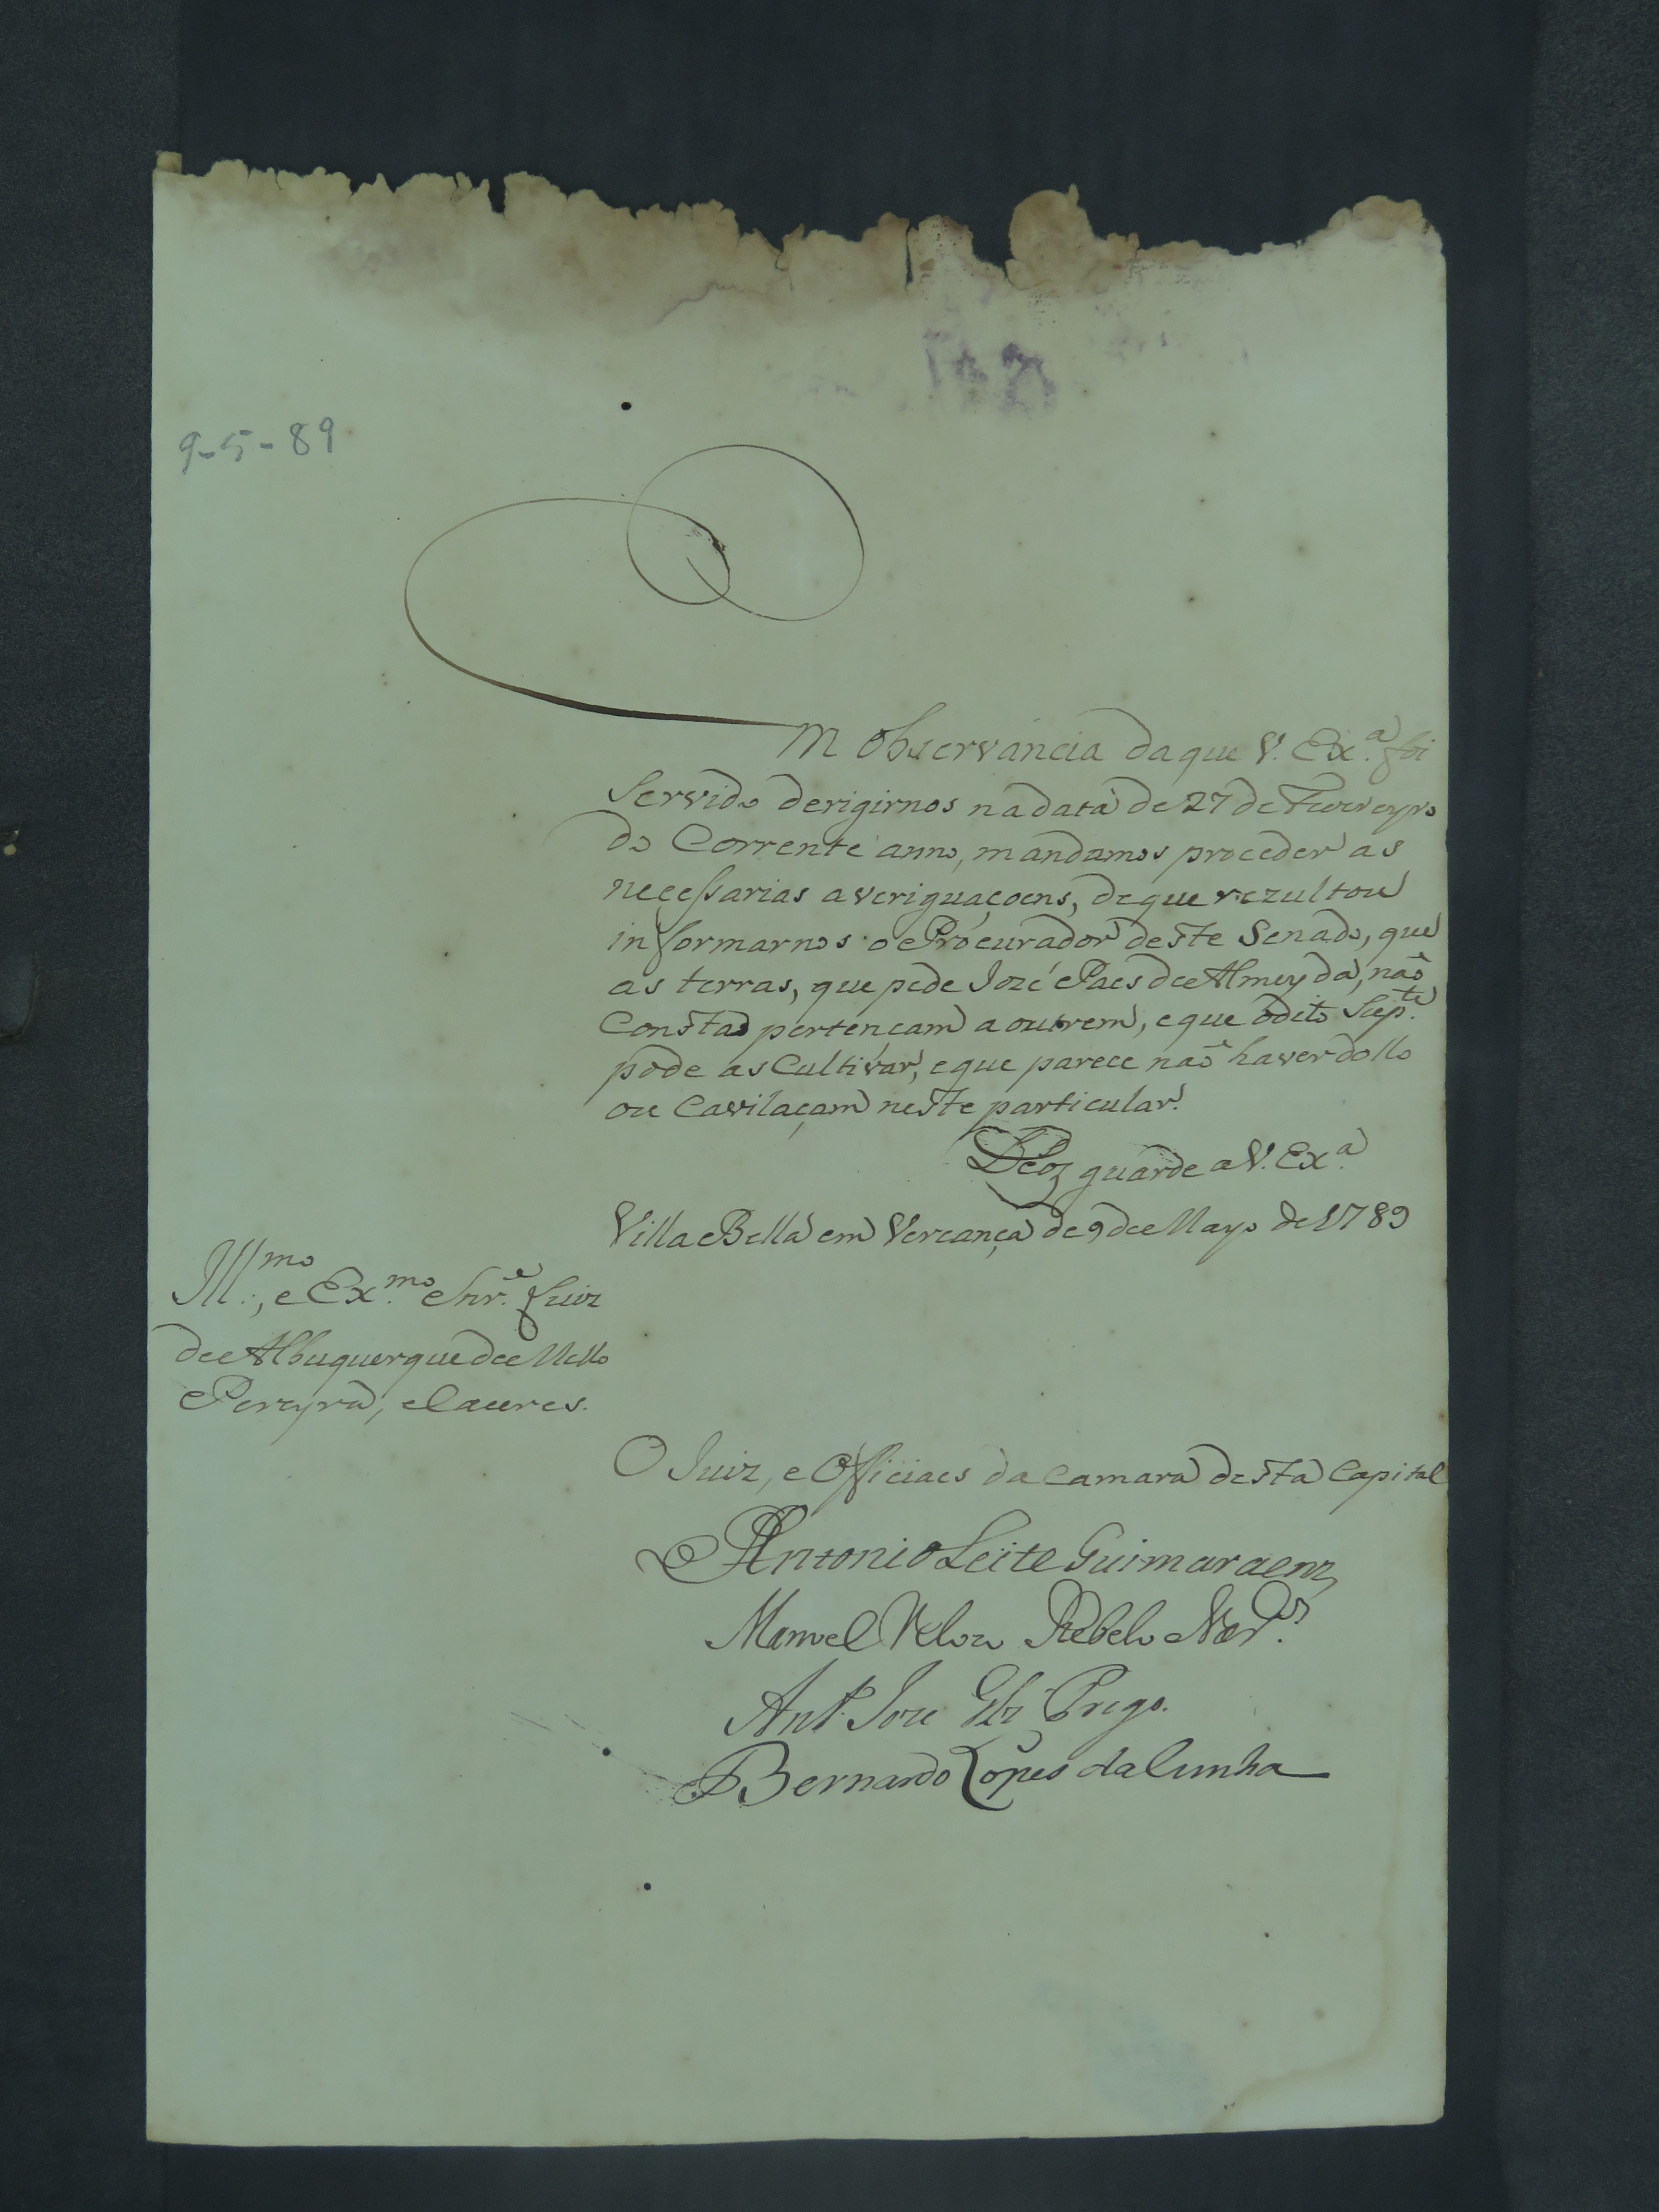 9-5-89
Em Observancia da que V. Ex.ª foi
Servido derigirnos na data de 27 de Fevereyro
do Corrente anno, mandamos proceder as
necessarias averiguaçoens, de que rezultou
informarnos o Procurador deste Senado, que
as terras, que pede Jozé Paes de Almeyda, naõ
Consta pertençam a outrem, e que o dito Sup.te
pode as Cultivar, e que parece naõ haver dollo
ou Cavilaçam neste particular.
Deoz guarde a V. Ex.ª
Villa Bella em Vereança de 9 de Mayo de 1789
Ill.mo, e Ex.mo Snr.e Luiz
de Albuquerque de Mello
Pereyra, e Caceres.
O Juiz, e Officiaes da Camara desta Capital
Antonio Leite Guimaraenz
Manoel Veloz Rebelo
Ant.º Joze Glz Prego.
Bernardo Lopes da Cunha